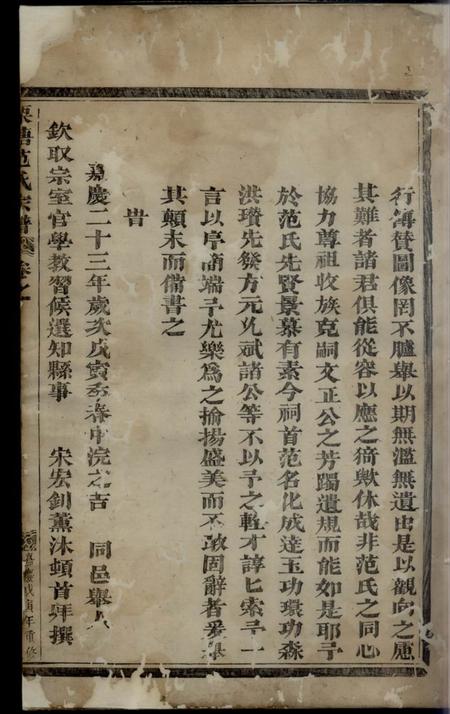 行薄贊圖像罔不臚舉以期無濫無遺由是以觀向之慮
其難者諸君俱能從容以應之猗歟休哉非范氏之同心
協力尊祖收族克嗣文正公之芳躅遺規而能如是耶予
於范氏先賢景慕有素今祠首范名化成達玉功環功森
洪瓚先發方元允斌諸公等不以予之輇才諄匕索予一
言以序簡端予尤樂為之揄揚盛美而不敢固辭者爰舉
其顛末而備書之
旹
嘉慶二十三年歲次戊寅季春中浣之吉 同邑舉人
欽取宗室官學教習候選知縣事 宋宏釗薰沐頓首拜撰
范氏宗譜 卷之一
嘉慶戊寅年重修